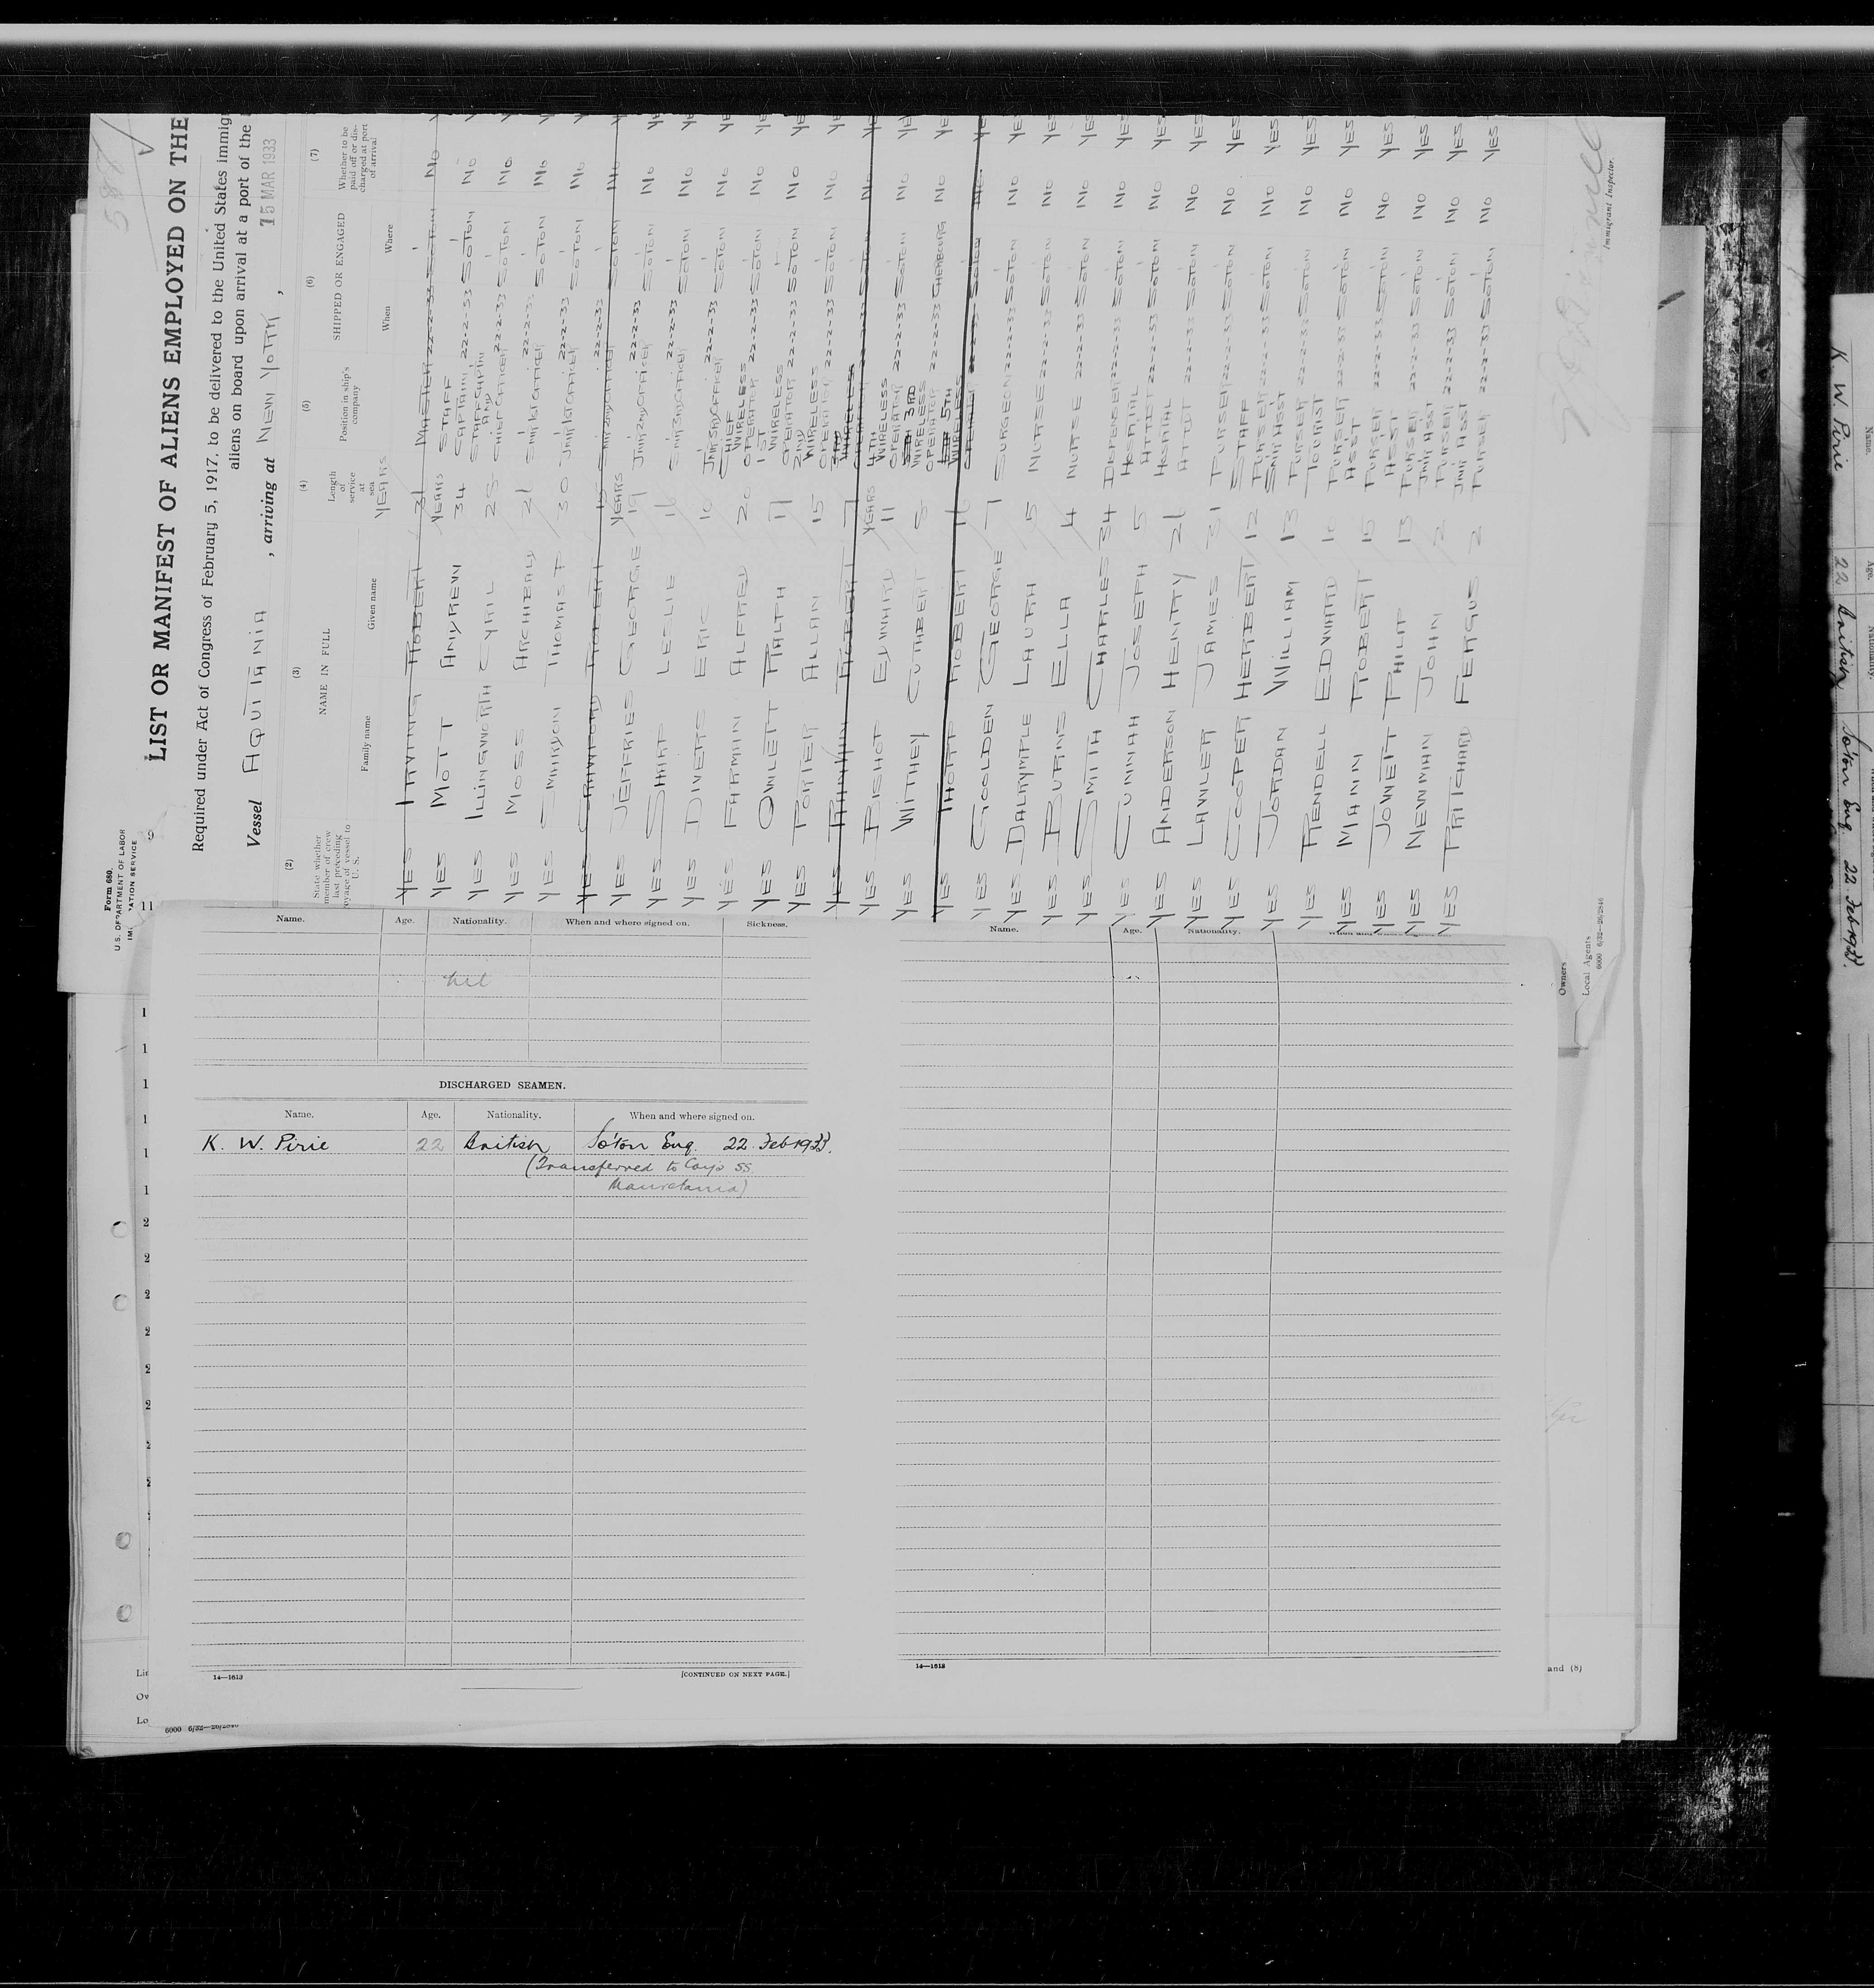 587
Form 680.
U.S. DEPARTMENT OF LABOR
IM ATION SERVICE
LIST OR MANIFEST OF ALIENS EMPLOYED ON THE
Required under Act of Congress of February 5, 1917, to be delivered to the United States immig
aliens on board upon arrival at a port of the
Vessel AQUITANIA , arriving at NEW YORK , 15 MAR 1933
(2) (3) (4) (5) (6) (7)
State whether member of crew last preceding voyage of vessel to U. S.
NAME IN FULL
Family name Given name
Length of service at sea
YEARS
Position in ship's company
SHIPPED OR ENGAGED
When Where
Whether to be paid off or discharged at port of arrival
YES IRVING ROBERT 31 MASTER 22-2-33 SOTON NO
YES MOTT ANDREW 34 STAFF CAPTAIN 22-2-33 SOTON NO
YES ILLINGWORTH CYRIL 25 22-2-33 SOTON NO
YES MOSS ARCHIBALD 21 SNR 1ST OFFICER 22-2-33 SOTON NO
YES THOMAS P 30 JNR 1ST OFFICER 22-2-33 SOTON NO
YES CRAWFORD ROBERT 22-2-33 SOTON NO
YES JEFFRIES GEORGE 19 JNR 2ND OFFICER 22-2-33 SOTON NO
YES SHARP LESLIE SNR 3RD OFFICER 22-2-33 SOTON NO
YES DIVERS ERIC JNR 3RD OFFICER 22-2-33 SOTON NO
YES FARMAN ALFRED 20 CHIEF WIRELESS OPERATOR 22-2-33 SOTON NO
YES OWLETT RALPH 17 1ST WIRELESS OPERATOR 22-2-33 SOTON NO
YES PORTER ALLAN 15 2ND WIRELESS OPERATOR 22-2-33 SOTON NO
YES RANKIN ROBERT 7 WIRELESS NO
YES BISHOP EDWARD 11 4TH WIRELESS OPERATOR 22-2-33 SOTON NO YES
YES WITHEY CUTHBERT 3RD WIRELESS OPERATOR 22-2-33 CHERBOURG NO YES
YES THORP ROBERT 5TH WIRELESS OPERATOR SOTON NO YES
YES GOOLDEN GEORGE 7 SURGEON 22-2-33 SOTON NO YES
YES DALRYMPLE LAURA 5 NURSE 22-2-33 SOTON NO YES
YES BURNS ELLA 4 NURSE 22-2-33 SOTON NO YES
YES SMITH CHARLES 34 DISPENSER 22-2-33 SOTON NO YES
YES CUNNAH JOSEPH 5 HOSPITAL ATTDT 22-2-33 SOTON NO YES
YES ANDERSON HENRY 21 HOSPITAL ATTDT 22-2-33 SOTON NO YES
YES LAWLER JAMES 31 PURSER 22-2-33 SOTON NO YES
YES COOPER HERBERT 12 STAFF PURSER 22-2-33 SOTON NO YES
YES JORDAN WILLIAM 13 SNR ASST PURSER 22-2-33 SOTON NO YES
YES RENDELL EDWARD TOURIST PURSER 22-2-33 SOTON NO YES
YES MANN ROBERT ASST PURSER 22-2-33 SOTON NO YES
YES JOWETT PHILIP 13 ASST PURSER 22-2-33 SOTON NO YES
YES NEWMAN JOHN 2 JNR ASST PURSER 22-2-33 SOTON NO YES
YES PRITCHARD FERGUS 2 JNR ASST PURSER 22-2-33 SOTON NO YES
Immigrant Inspector.
Owners
Local Agents
6000 6/32—26/2846
Name. Age. Nationality. When and where signed on. Sickness.
nil
DISCHARGED SEAMEN.
Name. Age. Nationality. When and where signed on.
K. W. Pirie 22 British So'ton Eng. 22 Feb 1933.
(Transferred to Coy's ss.
Mauretania)
14—1613 [CONTINUED ON NEXT PAGE.]
Name. Age. Nationality.
14—1613
and (8)
K. W. Pirie 22 British So'ton Eng. 22 Feb 1933.